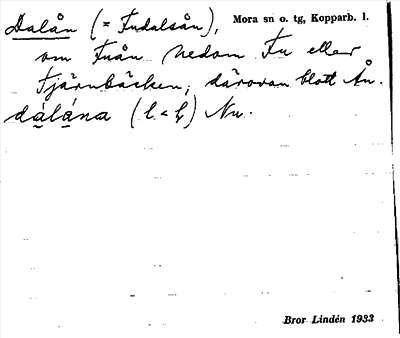 Dalån (= Fudalsån), Mora sn o. tg, Kopparb. l.
om Fuån nedom Fu eller
Tjärnbäcken, därovan blott Ån.
dalana (l < ) Nu.
Bror Lindén 1933